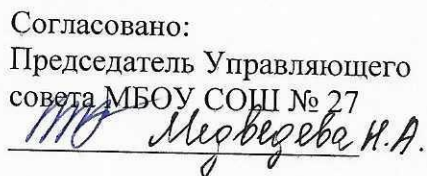 Согласовано:
Председатель Управляющего
совета МБОУ СОШ № 27
Медведева Н.А.